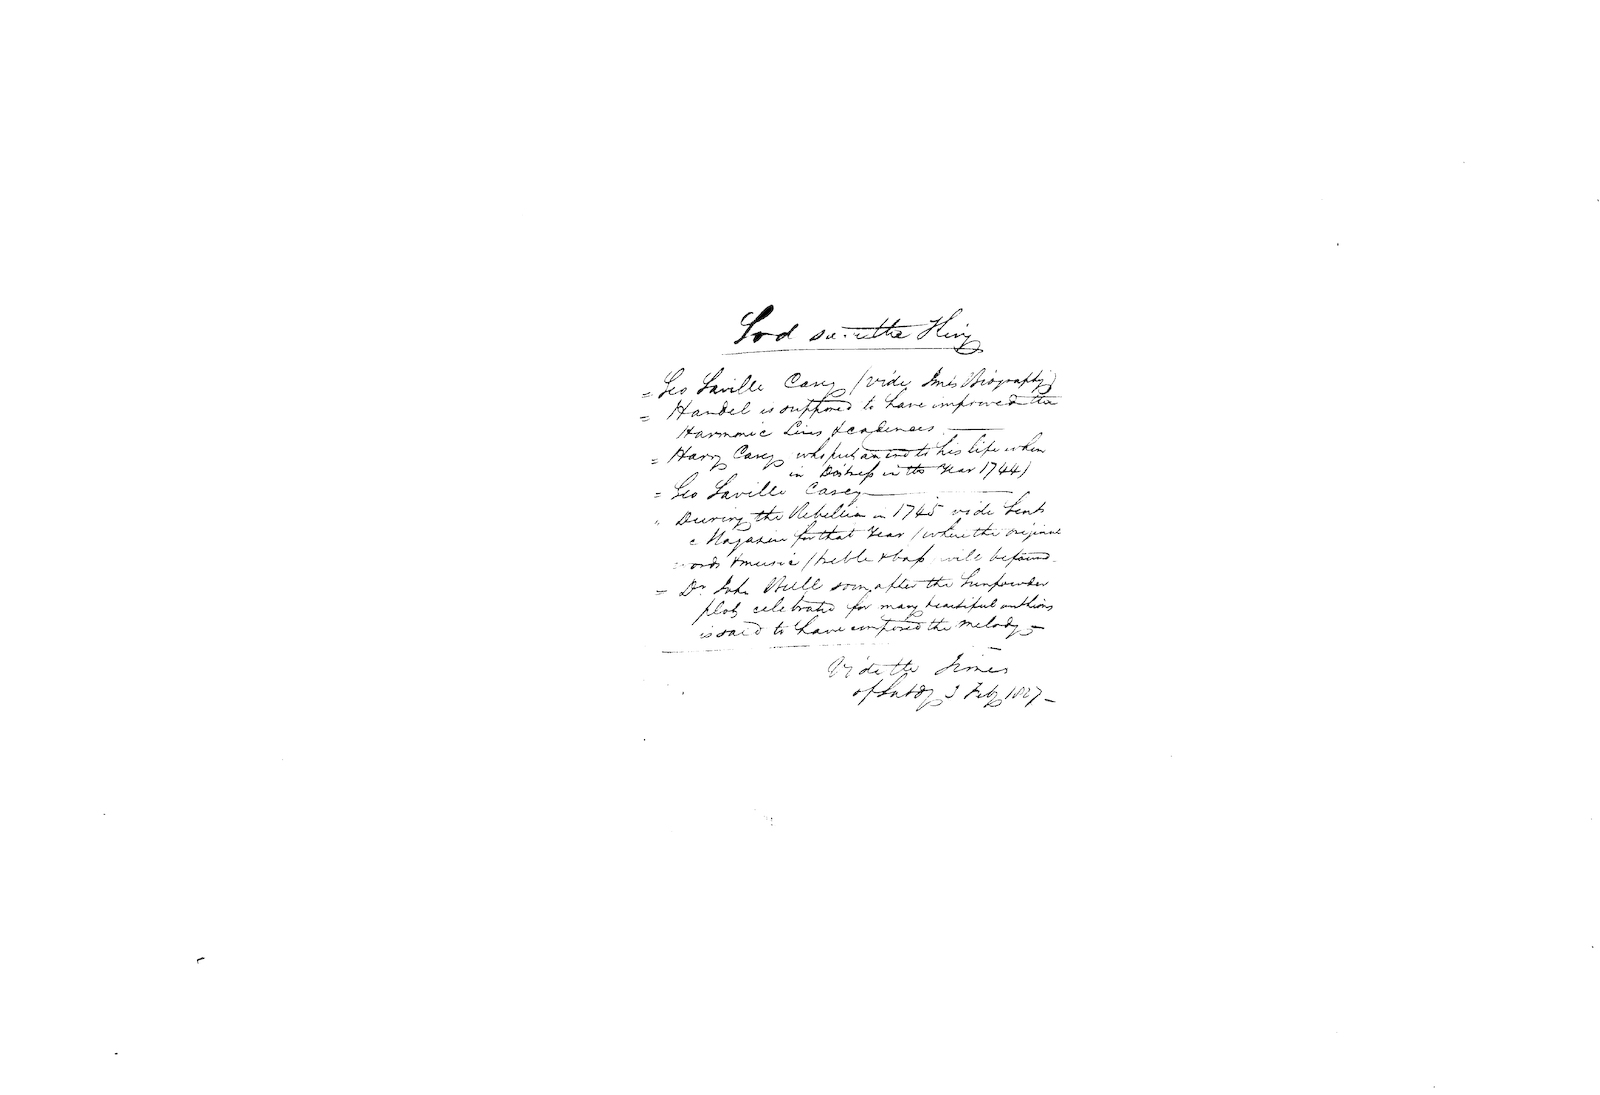 God save the King
= Geo Saville Carey (vide Biography)
= Handel is supposed to have improved the
Harmonic Lines & cadences
= Harry Carey who put an end to his life when
in Distress in the Year 1744)
= Geo Saville Carey
" During the Rebellion in 1745 vide Gents
Magazine for that Year (where the original
words & music (treble & bass will be found
= Dr. John Bull soon after the Gunpowder
plot, celebrated for many beautiful anthems
is said to have composed the melody
Vide the Times
of Satdy 3 Feby 1827